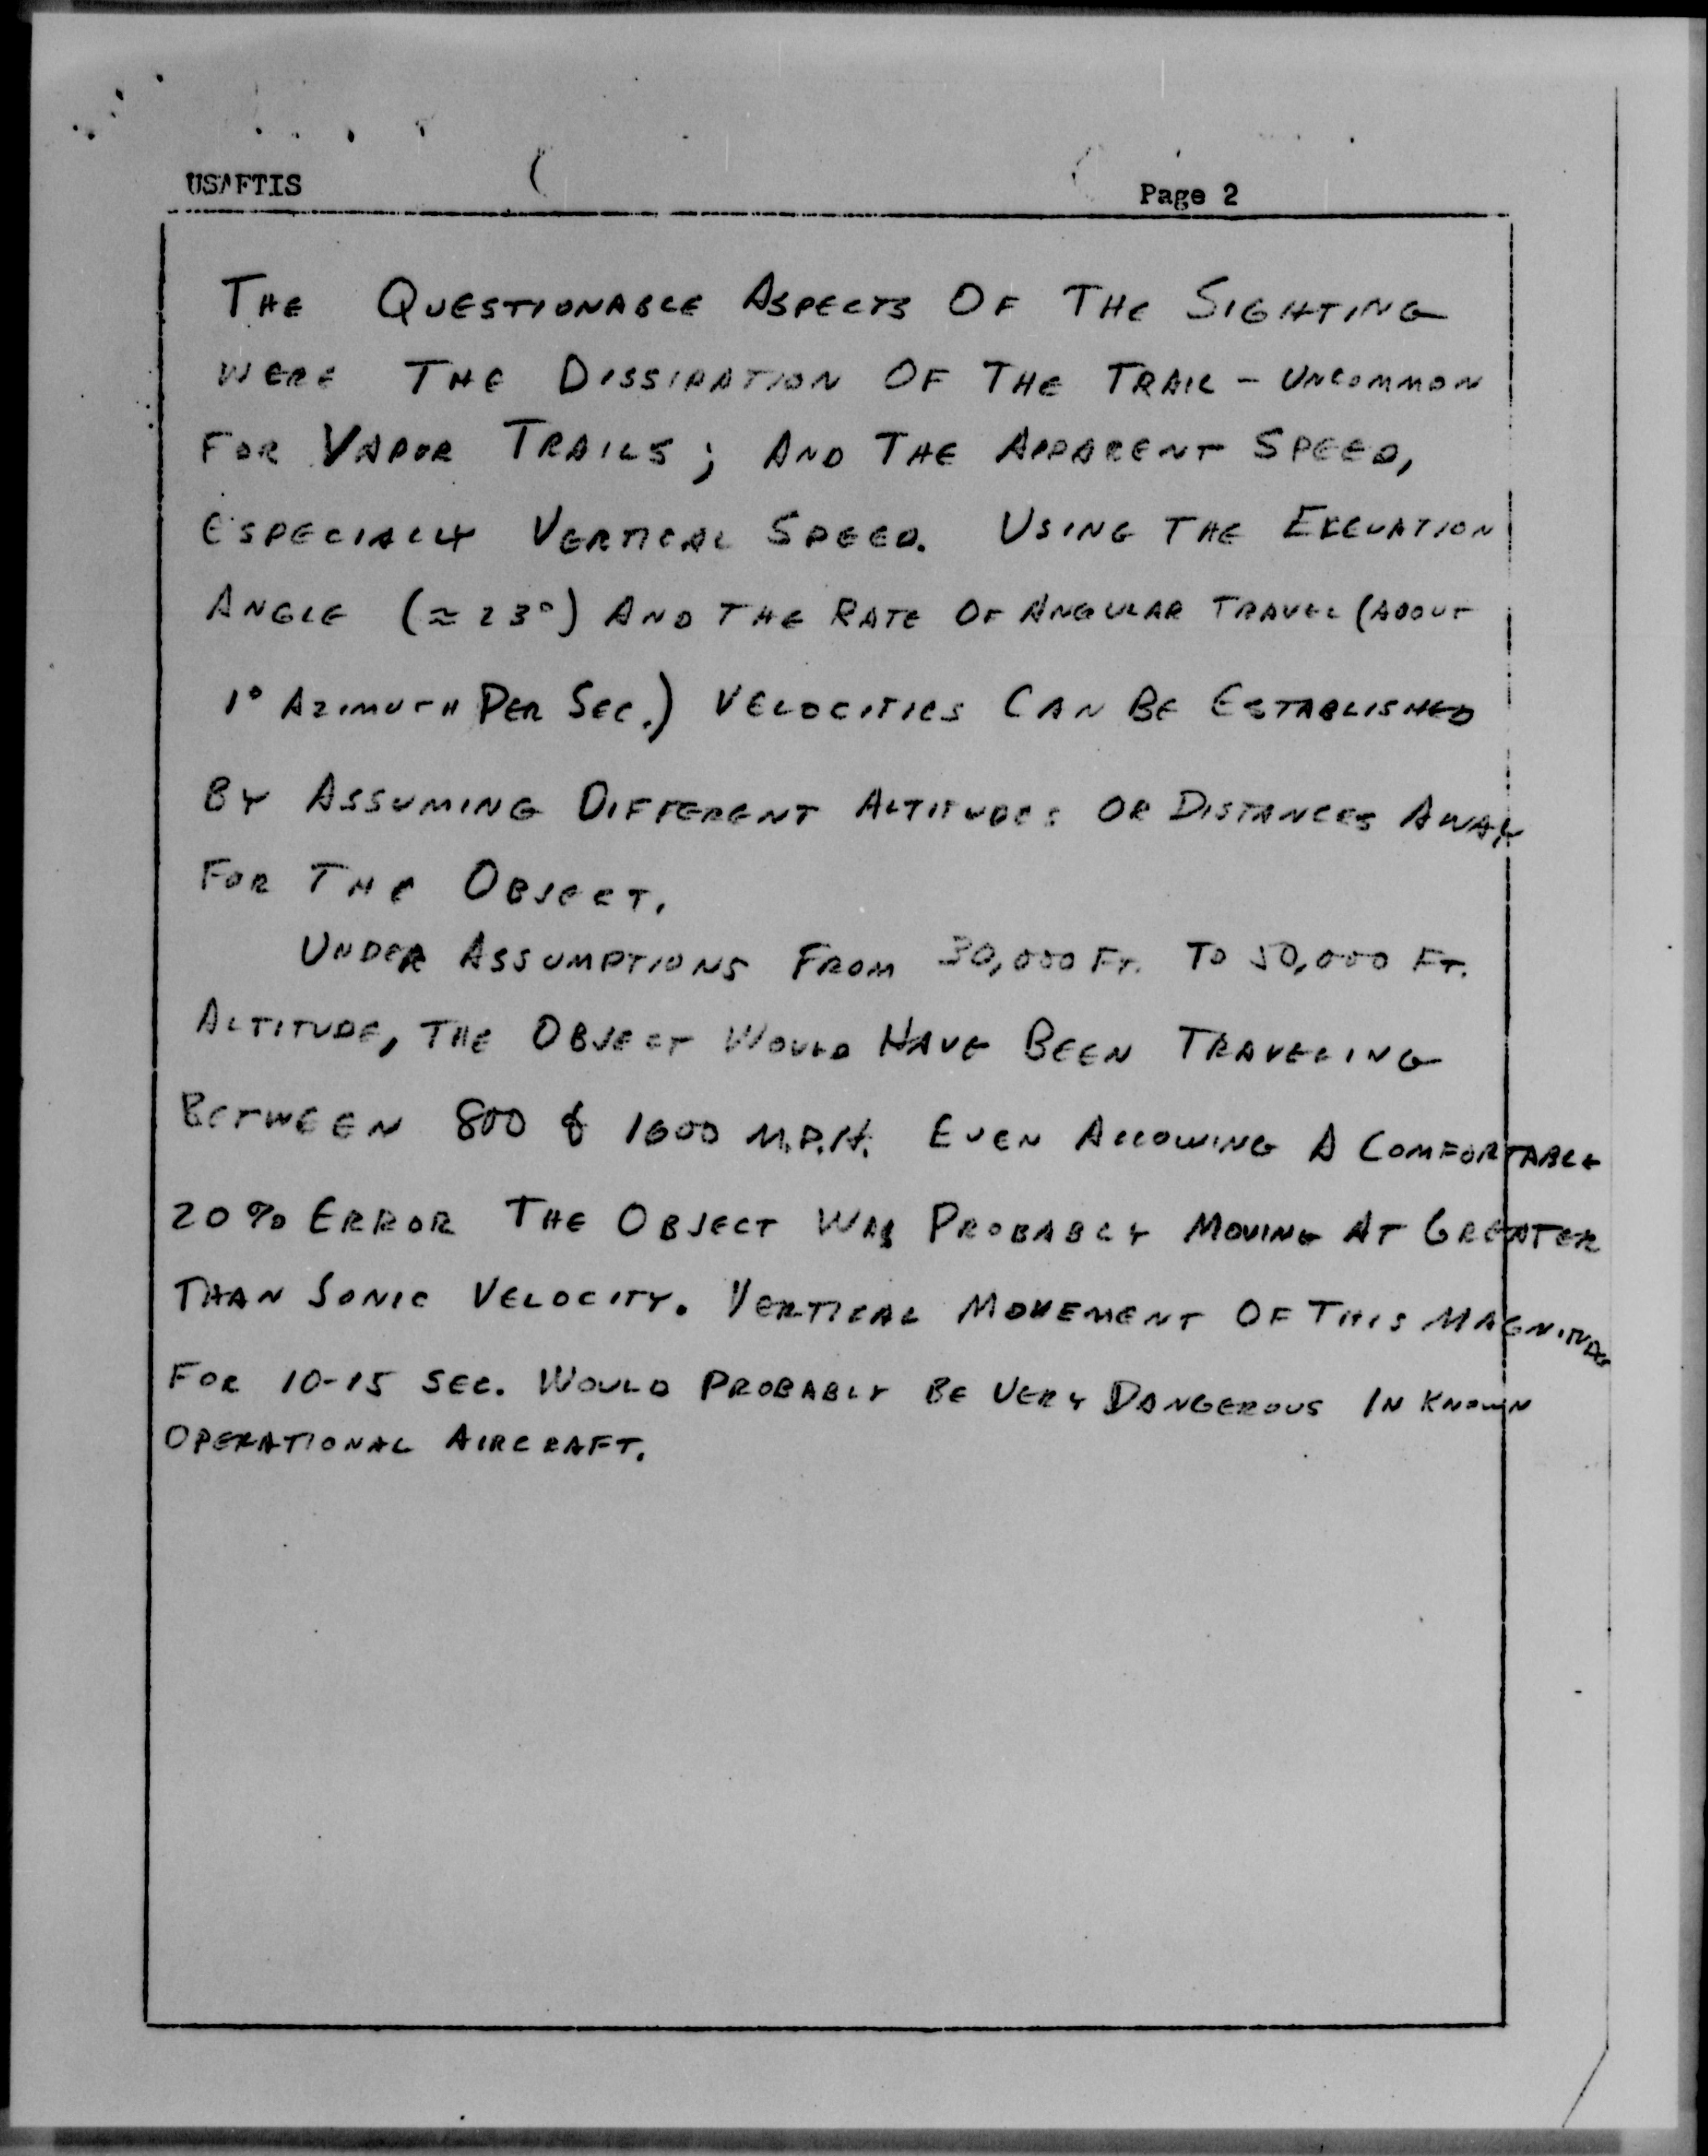 USAFTIS
Page 2
THE QUESTIONABLE ASPECTS OF THE SIGHTING
WERE THE DISSIPATION OF THE TRAIL - UNCOMMON
FOR VAPOR TRAILS; AND THE APPARENT SPEED,
ESPECIALLY VERTICAL SPEED. USING THE ELEVATION
ANGLE (≈23°) AND THE RATE OF ANGULAR TRAVEL (ABOUT
1° AZIMUTH PER SEC.) VELOCITIES CAN BE ESTABLISHED
BY ASSUMING DIFFERENT ALTITUDES OR DISTANCES AWAY
FOR THE OBJECT.
UNDER ASSUMPTIONS FROM 30,000 FT. TO 50,000 FT.
ALTITUDE, THE OBJECT WOULD HAVE BEEN TRAVELING
BETWEEN 800 & 1600 M.P.H. EVEN ALLOWING A COMFORTABLE
20% ERROR THE OBJECT WAS PROBABLY MOVING AT GREATER
THAN SONIC VELOCITY. VERTICAL MOVEMENT OF THIS MAGNITUDE
FOR 10-15 SEC. WOULD PROBABLY BE VERY DANGEROUS IN KNOWN
OPERATIONAL AIRCRAFT.